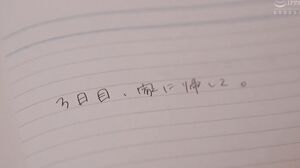 3日目、家に帰して。